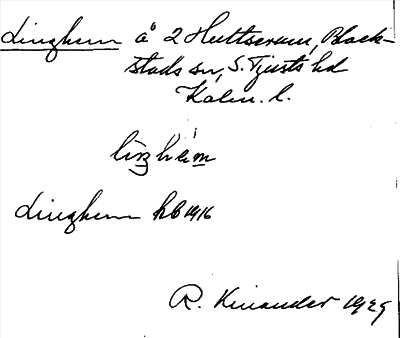 Linghem å 2 Hultserum, Black-
stads sn, S. Tjusts hd
Kalm. l.
Linghem kb 1916
R. Kinander 1929